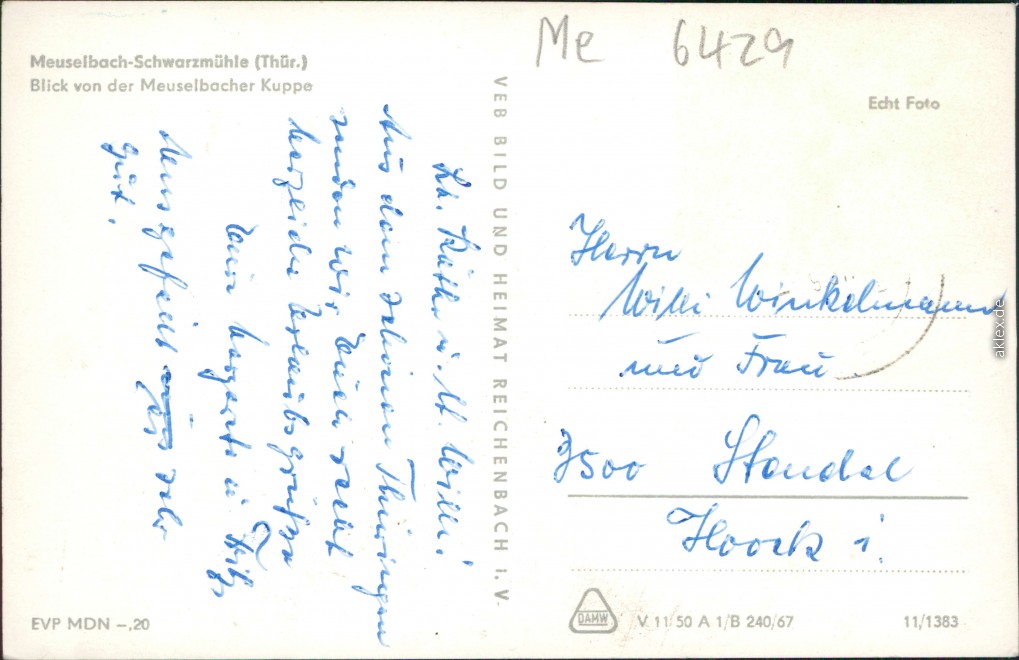 Me 6429
Meuselbach-Schwarzmühle (Thür.)
Blick von der Meuselbacher Kuppe
Echt Foto
Lb. Käthe u. lb. Willi!
Aus dem schönen Thüringen
senden wir Euch recht
herzliche Urlaubsgrüße
Eure Margarete u. Fritz
Uns gefällt es sehr
gut.
VEB BILD UND HEIMAT REICHENBACH I. V.
Herrn
Willi Winkelmann
und Frau
3500 Stendal
Hoock 1.
EVP MDN –,20
DAMW
V 11 50 A 1/B 240/67
11/1383
aklex.de